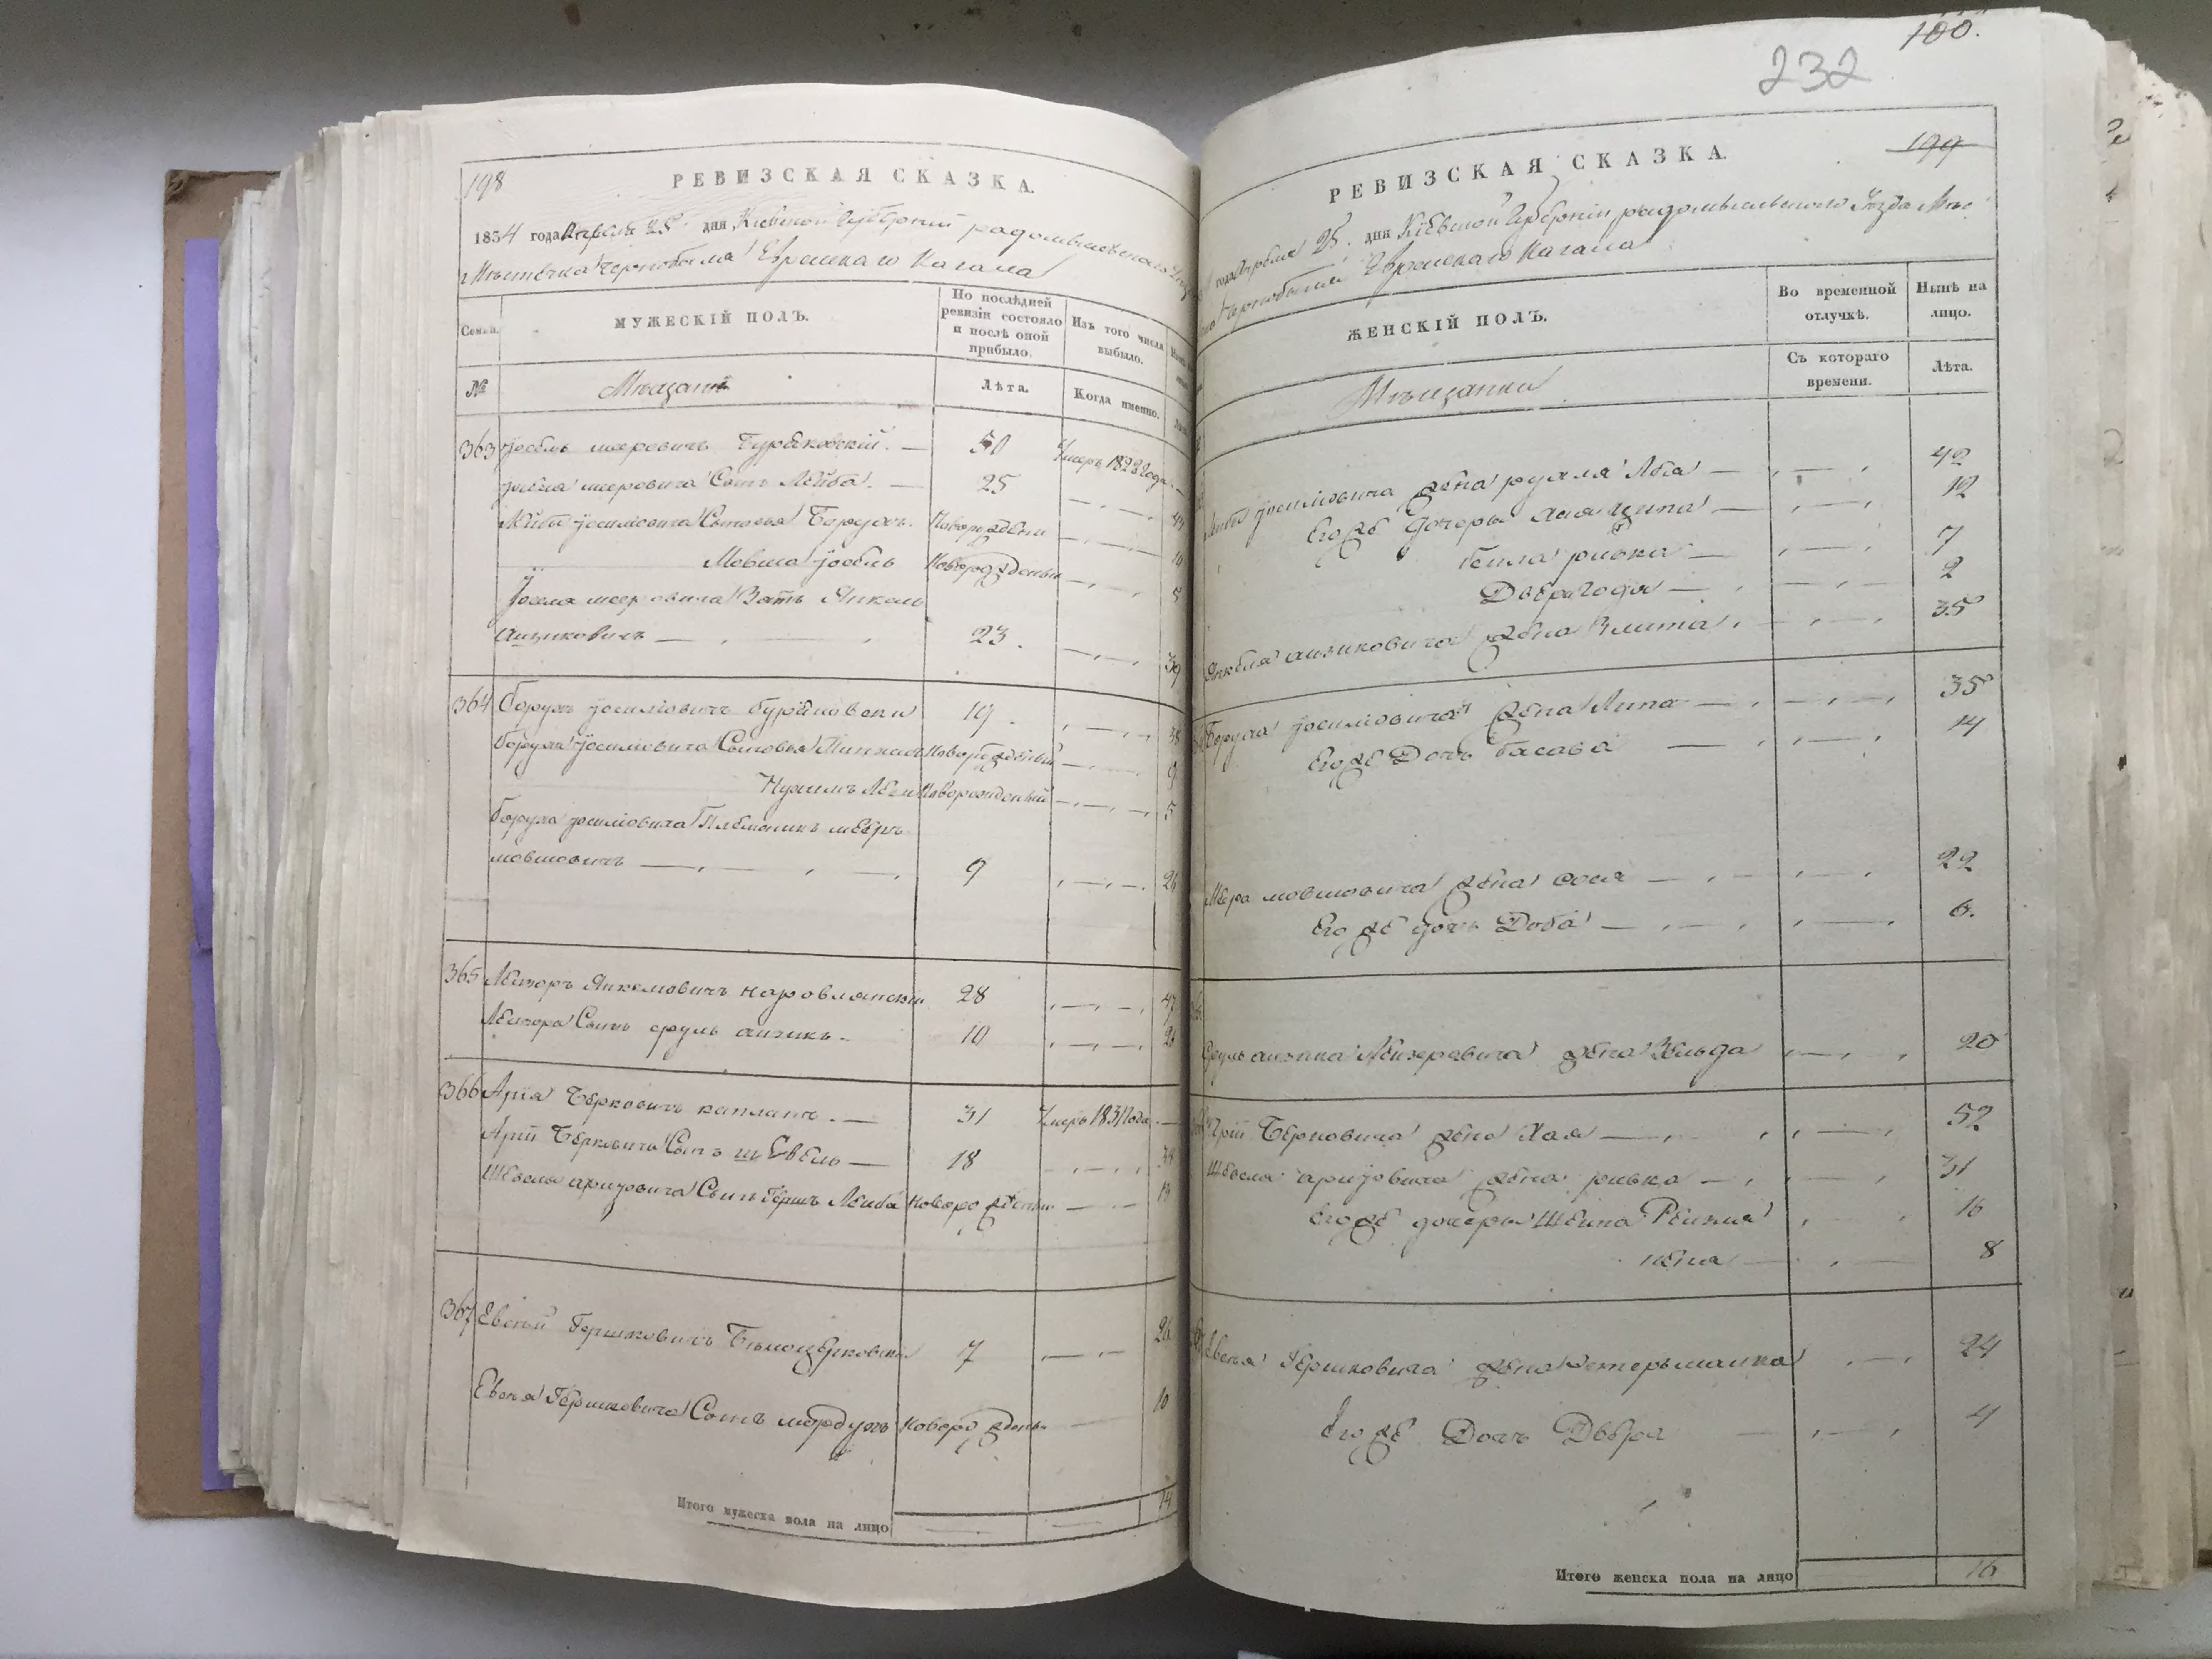 198
РЕВИЗСКАЯ СКАЗКА.
1834 года Апреля 25 дня Кіевской Губерніи радомысльскаго
Мѣстечка Чернобыля Еврейскаго Кагала
Семьи.
МУЖЕСКІЙ ПОЛЪ.
По послѣдней ревизіи состояло и послѣ оной прибыло.
Изъ того числа выбыло.
№
Мѣщане
Лѣта.
Когда именно.
363 Іосель меерович Бураковскій. — 50 Умеръ 1822 года —
Іосела мееровича Сынъ Лейба. — 25 44
Лейбы Іосиловича Сыновья Борухъ. Новорожденны 10
Мовша Іосель Новорожденны 5
Іоселя мееровича Зять Янкель
аизикович — 23. 39
364 Борухъ Іосилович 19. 38
Боруха Іосиловича Сыновья Пинхас Новорожденный 9
Нухимъ Лейб Новорожденный 5
Боруха Іосиловича Племяникъ мееръ
мовшовичъ — 9 26
365 Лейзоръ Янкелович наровлянскій 28 47
Лейзора Сынъ сруль аизикъ. 10 26
366 Арія Беркович капланъ. — 31 Умеръ 1831 года. —
Арій Берковича Сынъ шевель — 18 34
Шевеля ариовича Сынъ Герш Лейба Новорожденны 13
367 Евсѣй Гершкович Бѣлоцерковскій 7 26
Евсѣя Гершковича Сынъ мордухъ Новорожден 10
Итого мужеска пола на лицо 14
100.
232
199
РЕВИЗСКАЯ СКАЗКА.
года Апреля 25. дня Кіевской Губерніи радомысльскаго Уезда Мѣс
Чернобыля Еврейскаго Кагала
ЖЕНСКІЙ ПОЛЪ.
Во временной отлучкѣ.
Нынѣ на лицо.
Мѣщанки
Съ котораго времени.
Лѣта.
Лейбы Іосиловича жена рухля Лея — 42
Его же дочери 12
бейла ривка — 7
Двера — 2
Янкеля аизиковича жена Злата 35
Боруха Іосиловича жена — 35
Его же Дочь басова — 14
Меера мовшовича жена Сося — 22
Его же дочь Доба — 6.
Сруль аизика Лейзеровича жена Зельда 20
Арій Берковича жена Хая — 52
Шевеля ариовича жена ривка — 31
Его же дочери Шейна Рейзля 16
8
Евсѣя Гершковича жена естеръ малка 24
Его же Дочь Двера 4
Итого женска пола на лицо 16